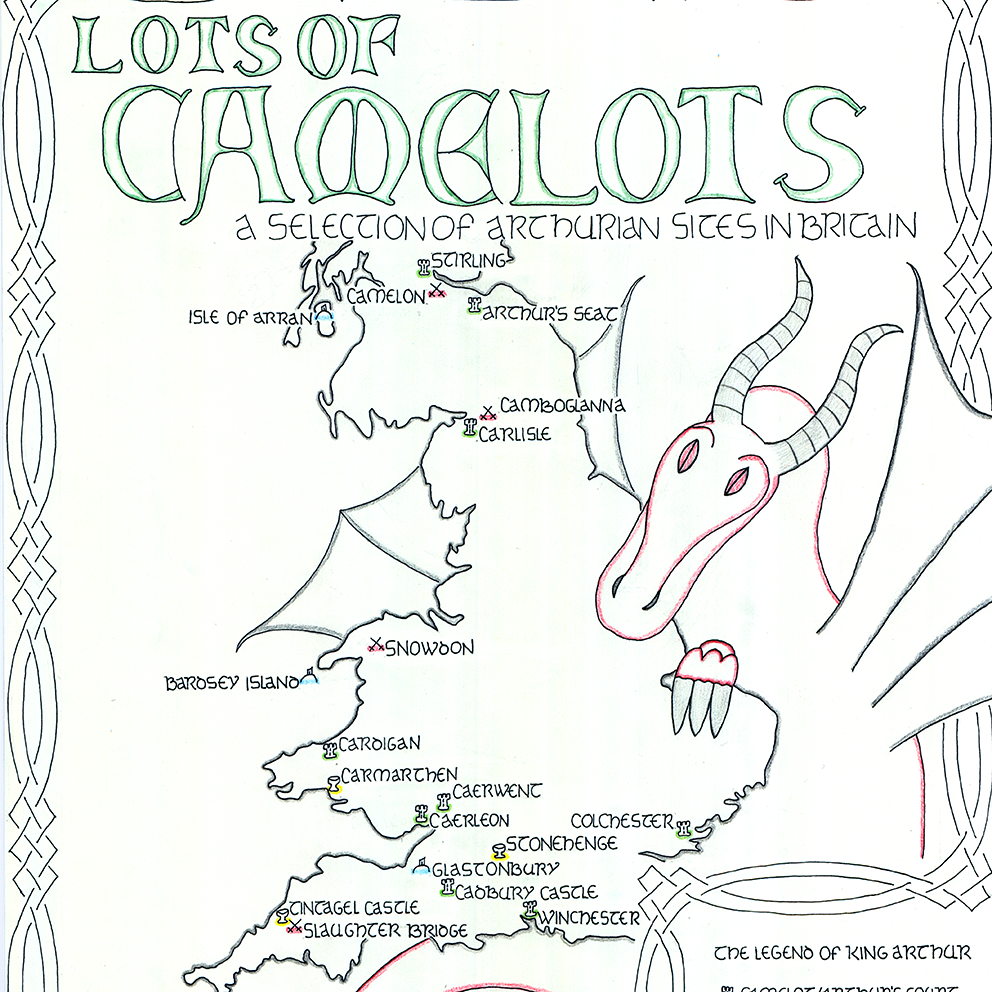 LOTS OF
CAMELOTS
A SELECTION OF ARTHURIAN SITES IN BRITAIN
STIRLING
CAMELON
ISLE OF ARRAN
ARTHUR'S SEAT
CAMBOGLANNA
CARLISLE
SNOWDON
BARDSEY ISLAND
CARDIGAN
CARMARTHEN
CAERWENT
CAERLEON
COLCHESTER
STONEHENGE
GLASTONBURY
CADBURY CASTLE
TINTAGEL CASTLE
WINCHESTER
SLAUGHTER BRIDGE
THE LEGEND OF KING ARTHUR
CAMELOT/ARTHUR'S COURT